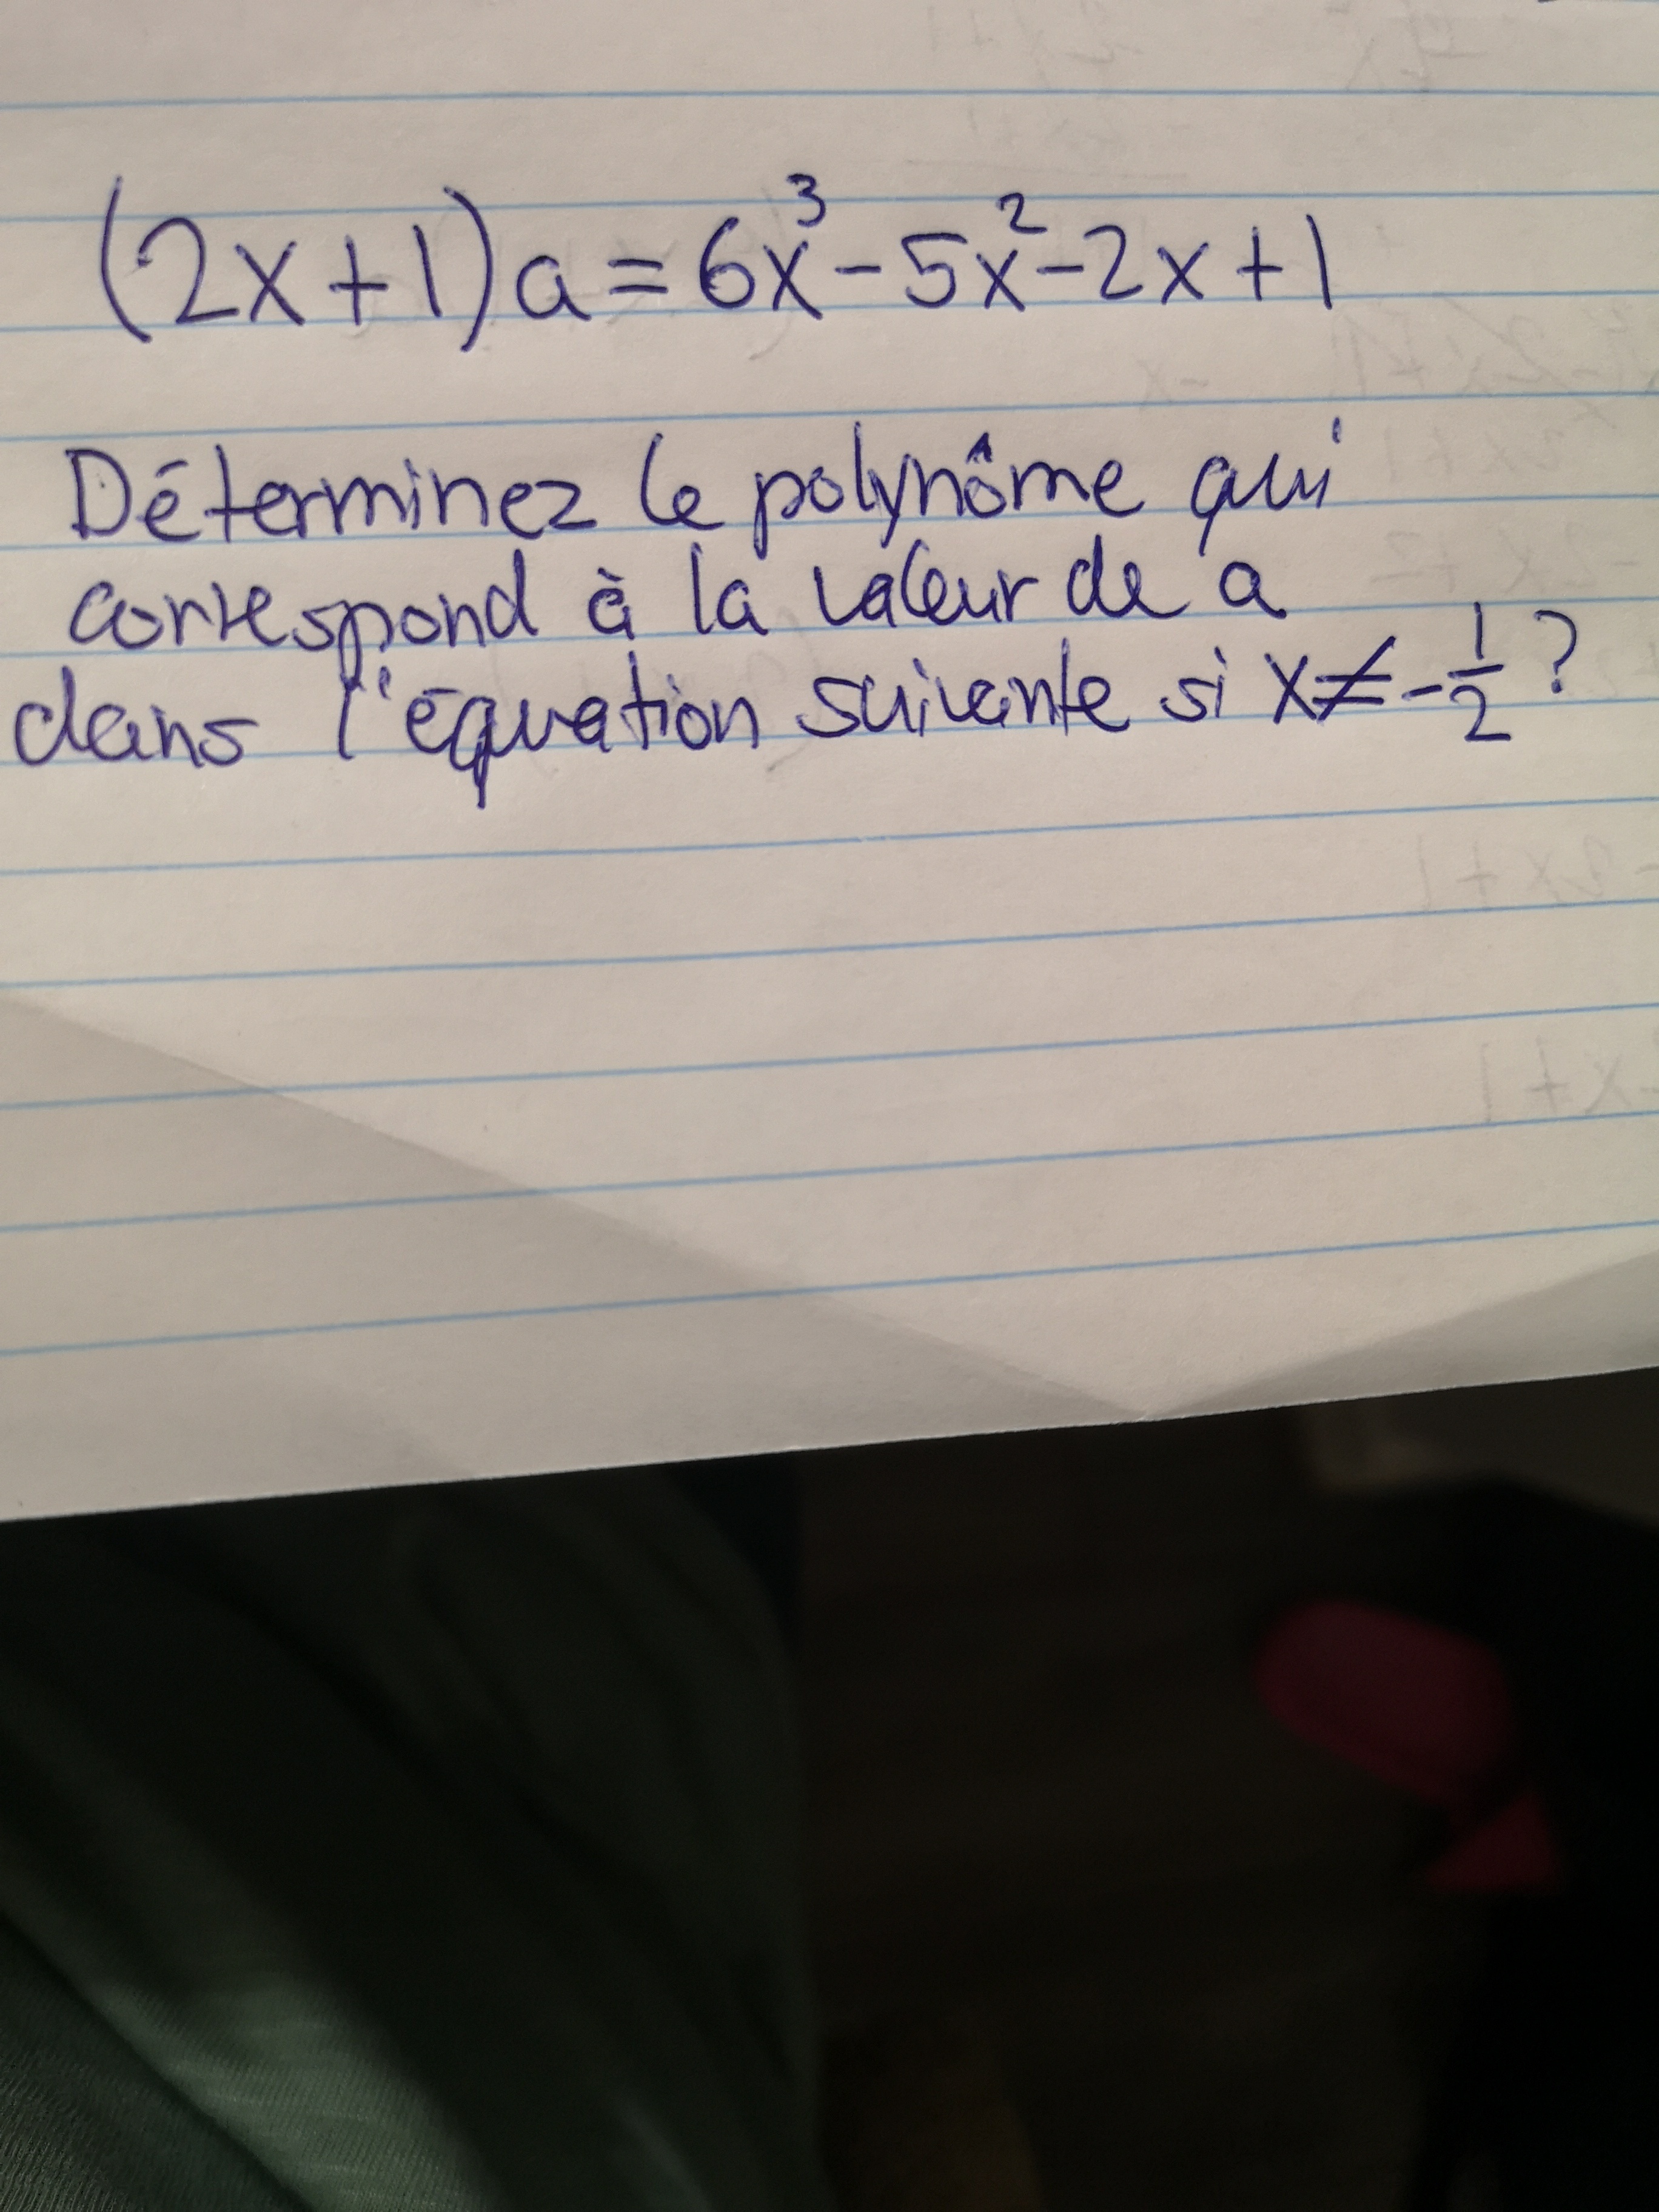 (2x+1)a = 6x³ - 5x² - 2x + 1
Déterminez le polynôme qui
correspond à la valeur de a
dans l'équation suivante si x ≠ - 1/2 ?